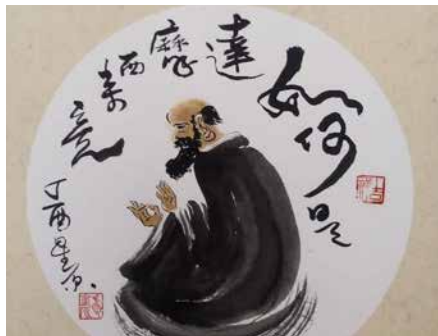 如何是
達
摩
西
来
意
丁酉星云